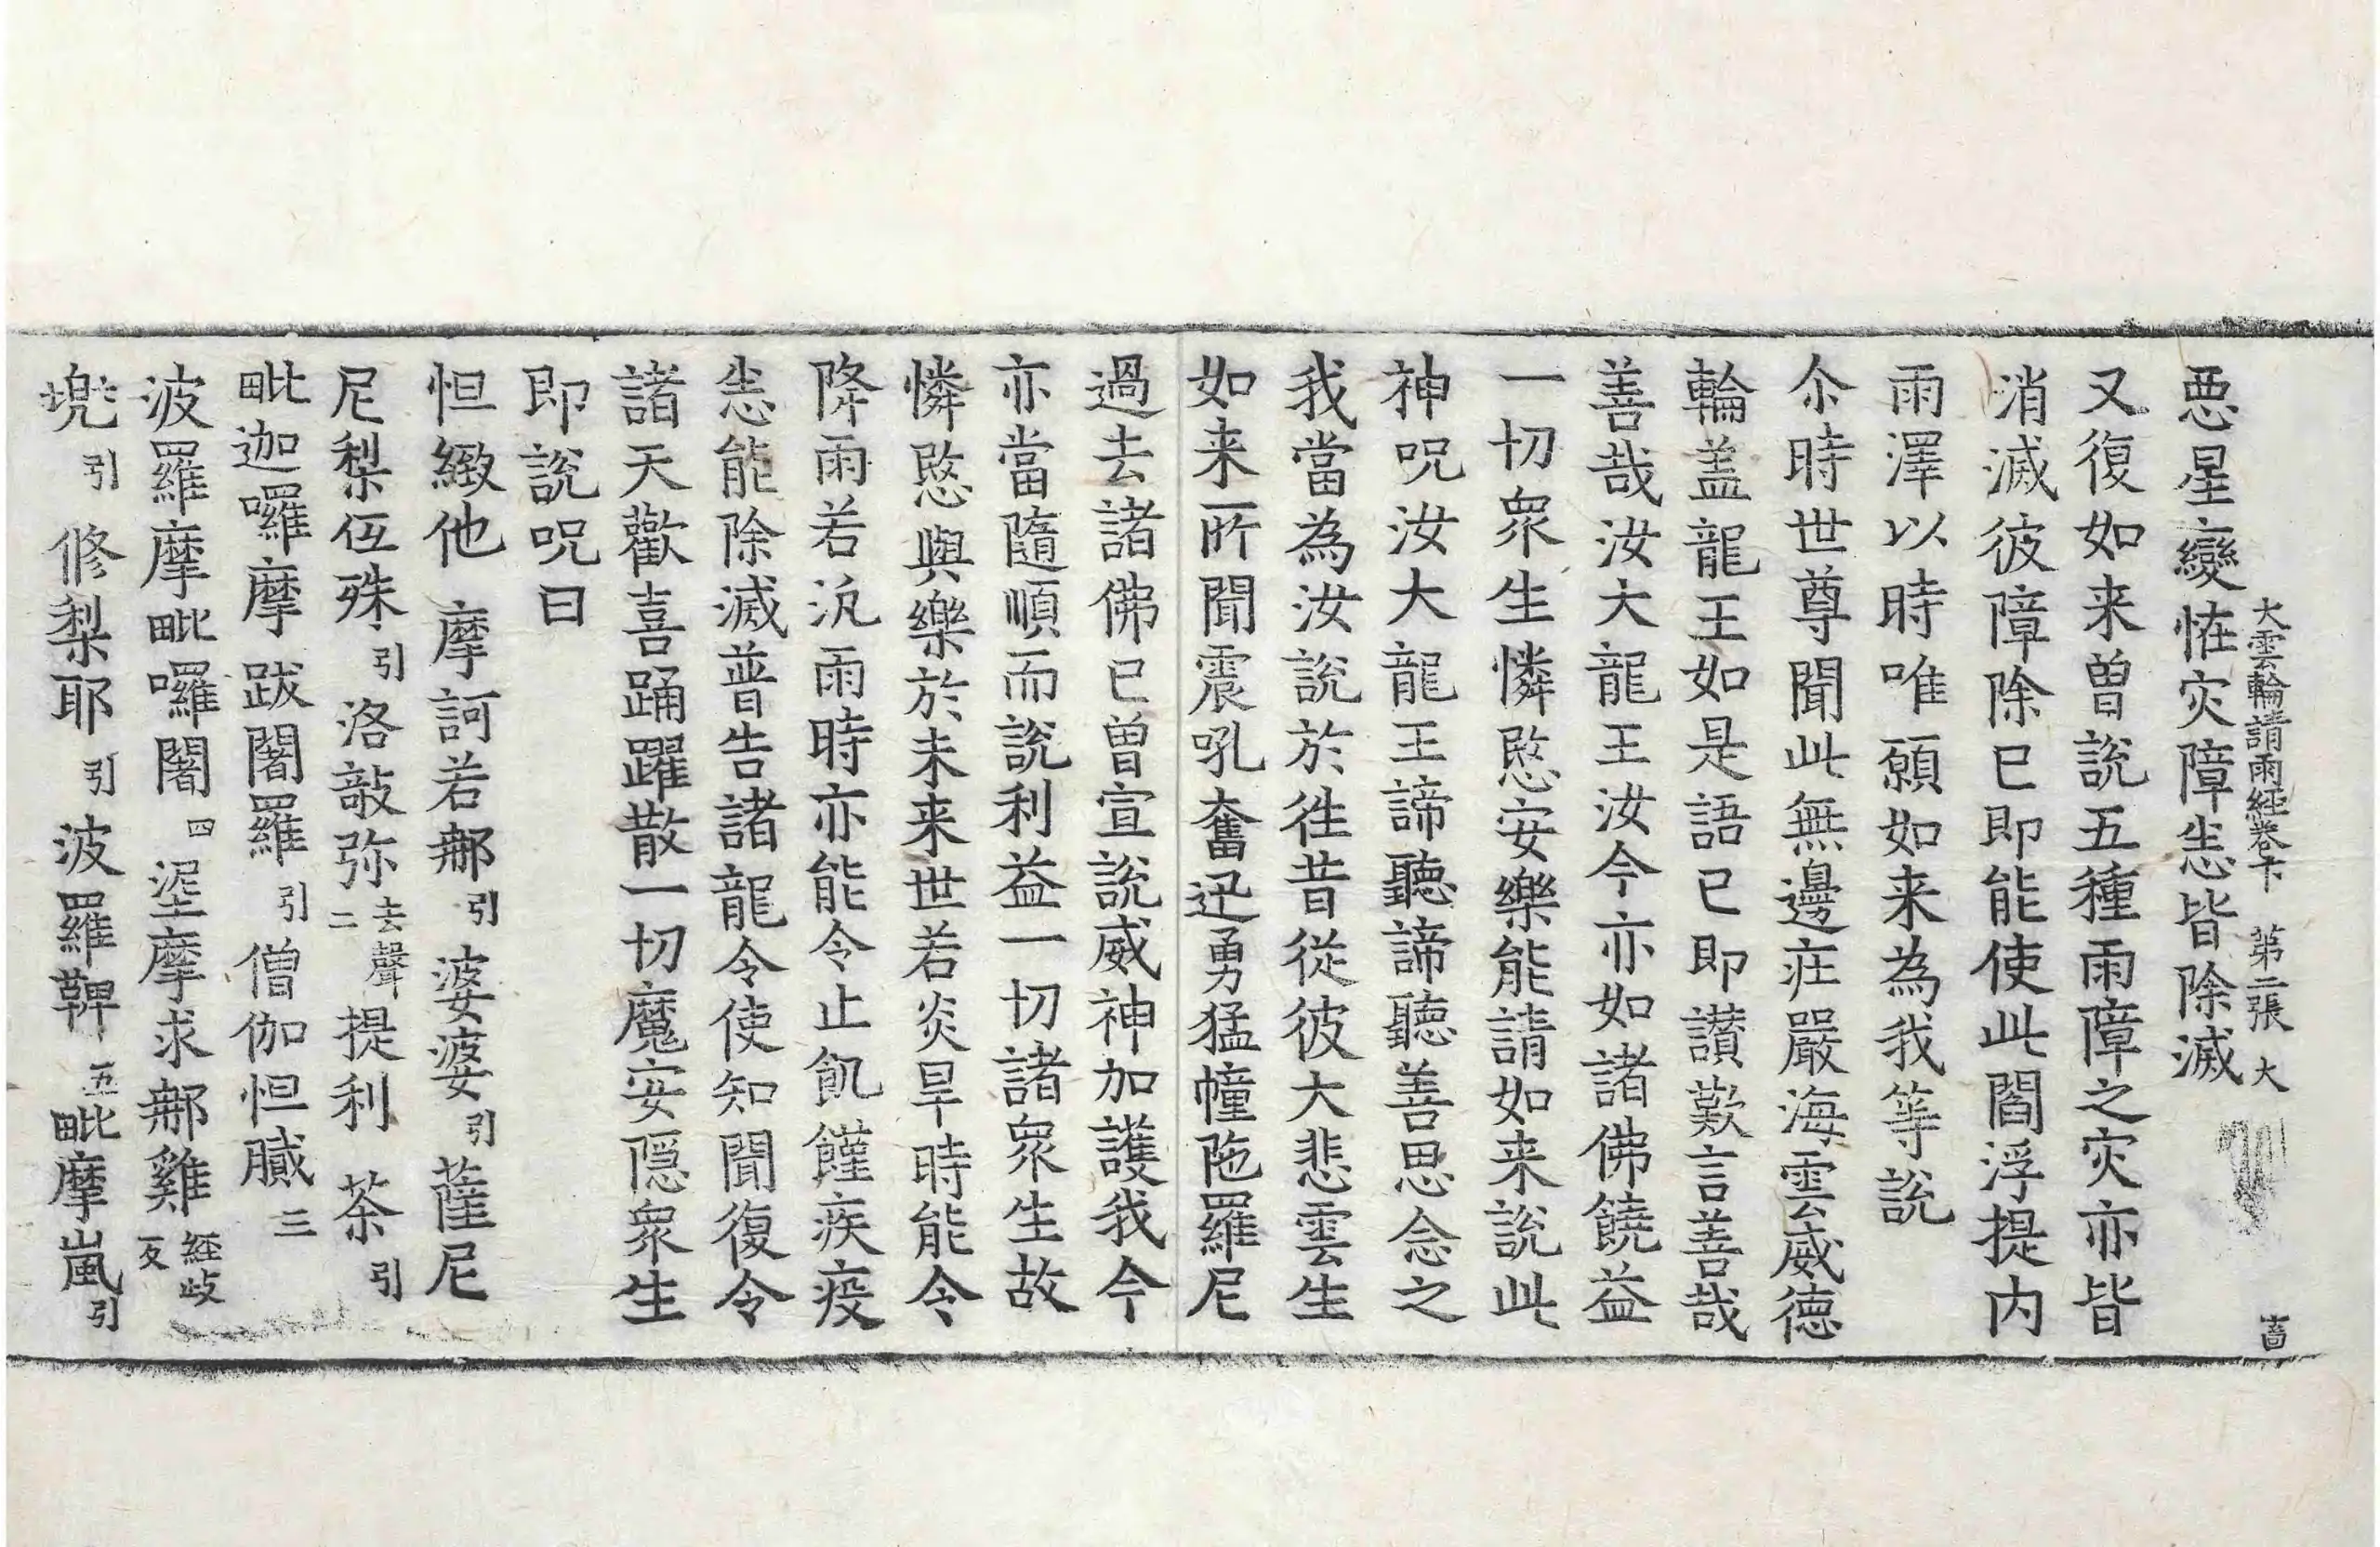 大雲輪請雨經卷下　第二張　大　嗇
惡星變恠灾障恙皆除滅
又復如来曾說五種雨障之灾亦皆
消滅彼障除已即能使此閻浮提内
雨澤以時唯願如来為我等說
尒時世尊聞此無邊莊嚴海雲威德
輪盖龍王如是語已即讃歎言善哉
善哉汝大龍王汝今亦如諸佛饒益
一切衆生憐愍安樂能請如来說此
神呪汝大龍王諦聽諦聽善思念之
我當為汝說於往昔從彼大悲雲生
如来所聞震吼奮迅勇猛幢陁羅尼
過去諸佛已曾宣說威神加護我今
亦當隨順而說利益一切諸衆生故
憐愍與樂於未来世若炎旱時能令
降雨若汎雨時亦能令止飢饉疾疫
恙能除滅普告諸龍令使知聞復令
諸天歡喜踊躍散一切魔安隱衆生
即說呪曰
怛緻他　摩訶若𨚗引婆婆引薩尼
尼梨伍殊引洛敲弥去聲二提利　茶引
毗迦囉摩跋闍羅引僧伽怛膩三
波羅摩毗囉闍四埿摩求𨚗雞經歧反
㙜引　修梨耶引波羅鞞五毗摩嵐引